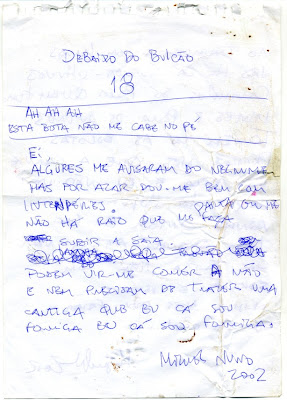 DEBAIXO DO BULCÃO
18
AH AH AH
ESTA BOTA NÃO ME CABE NO PÉ
Ei
ALGURES ME AVISARAM DO NEGRUME
MAS POR AZAR DOU-ME BEM COM
INTEMPÉRIES. PAIXA OU ME
NÃO HÁ RAIO QUE ME FAÇA
SUBIR A SAIA.
PODEM VIR-ME COMER A NÃO
E NEM PRECISAM DE TRAZER UMA
CANTIGA QUE EU CÁ SOU
FORMIGA EU CÁ SOU FORMIGA.
MIGUEL NUNO
2002